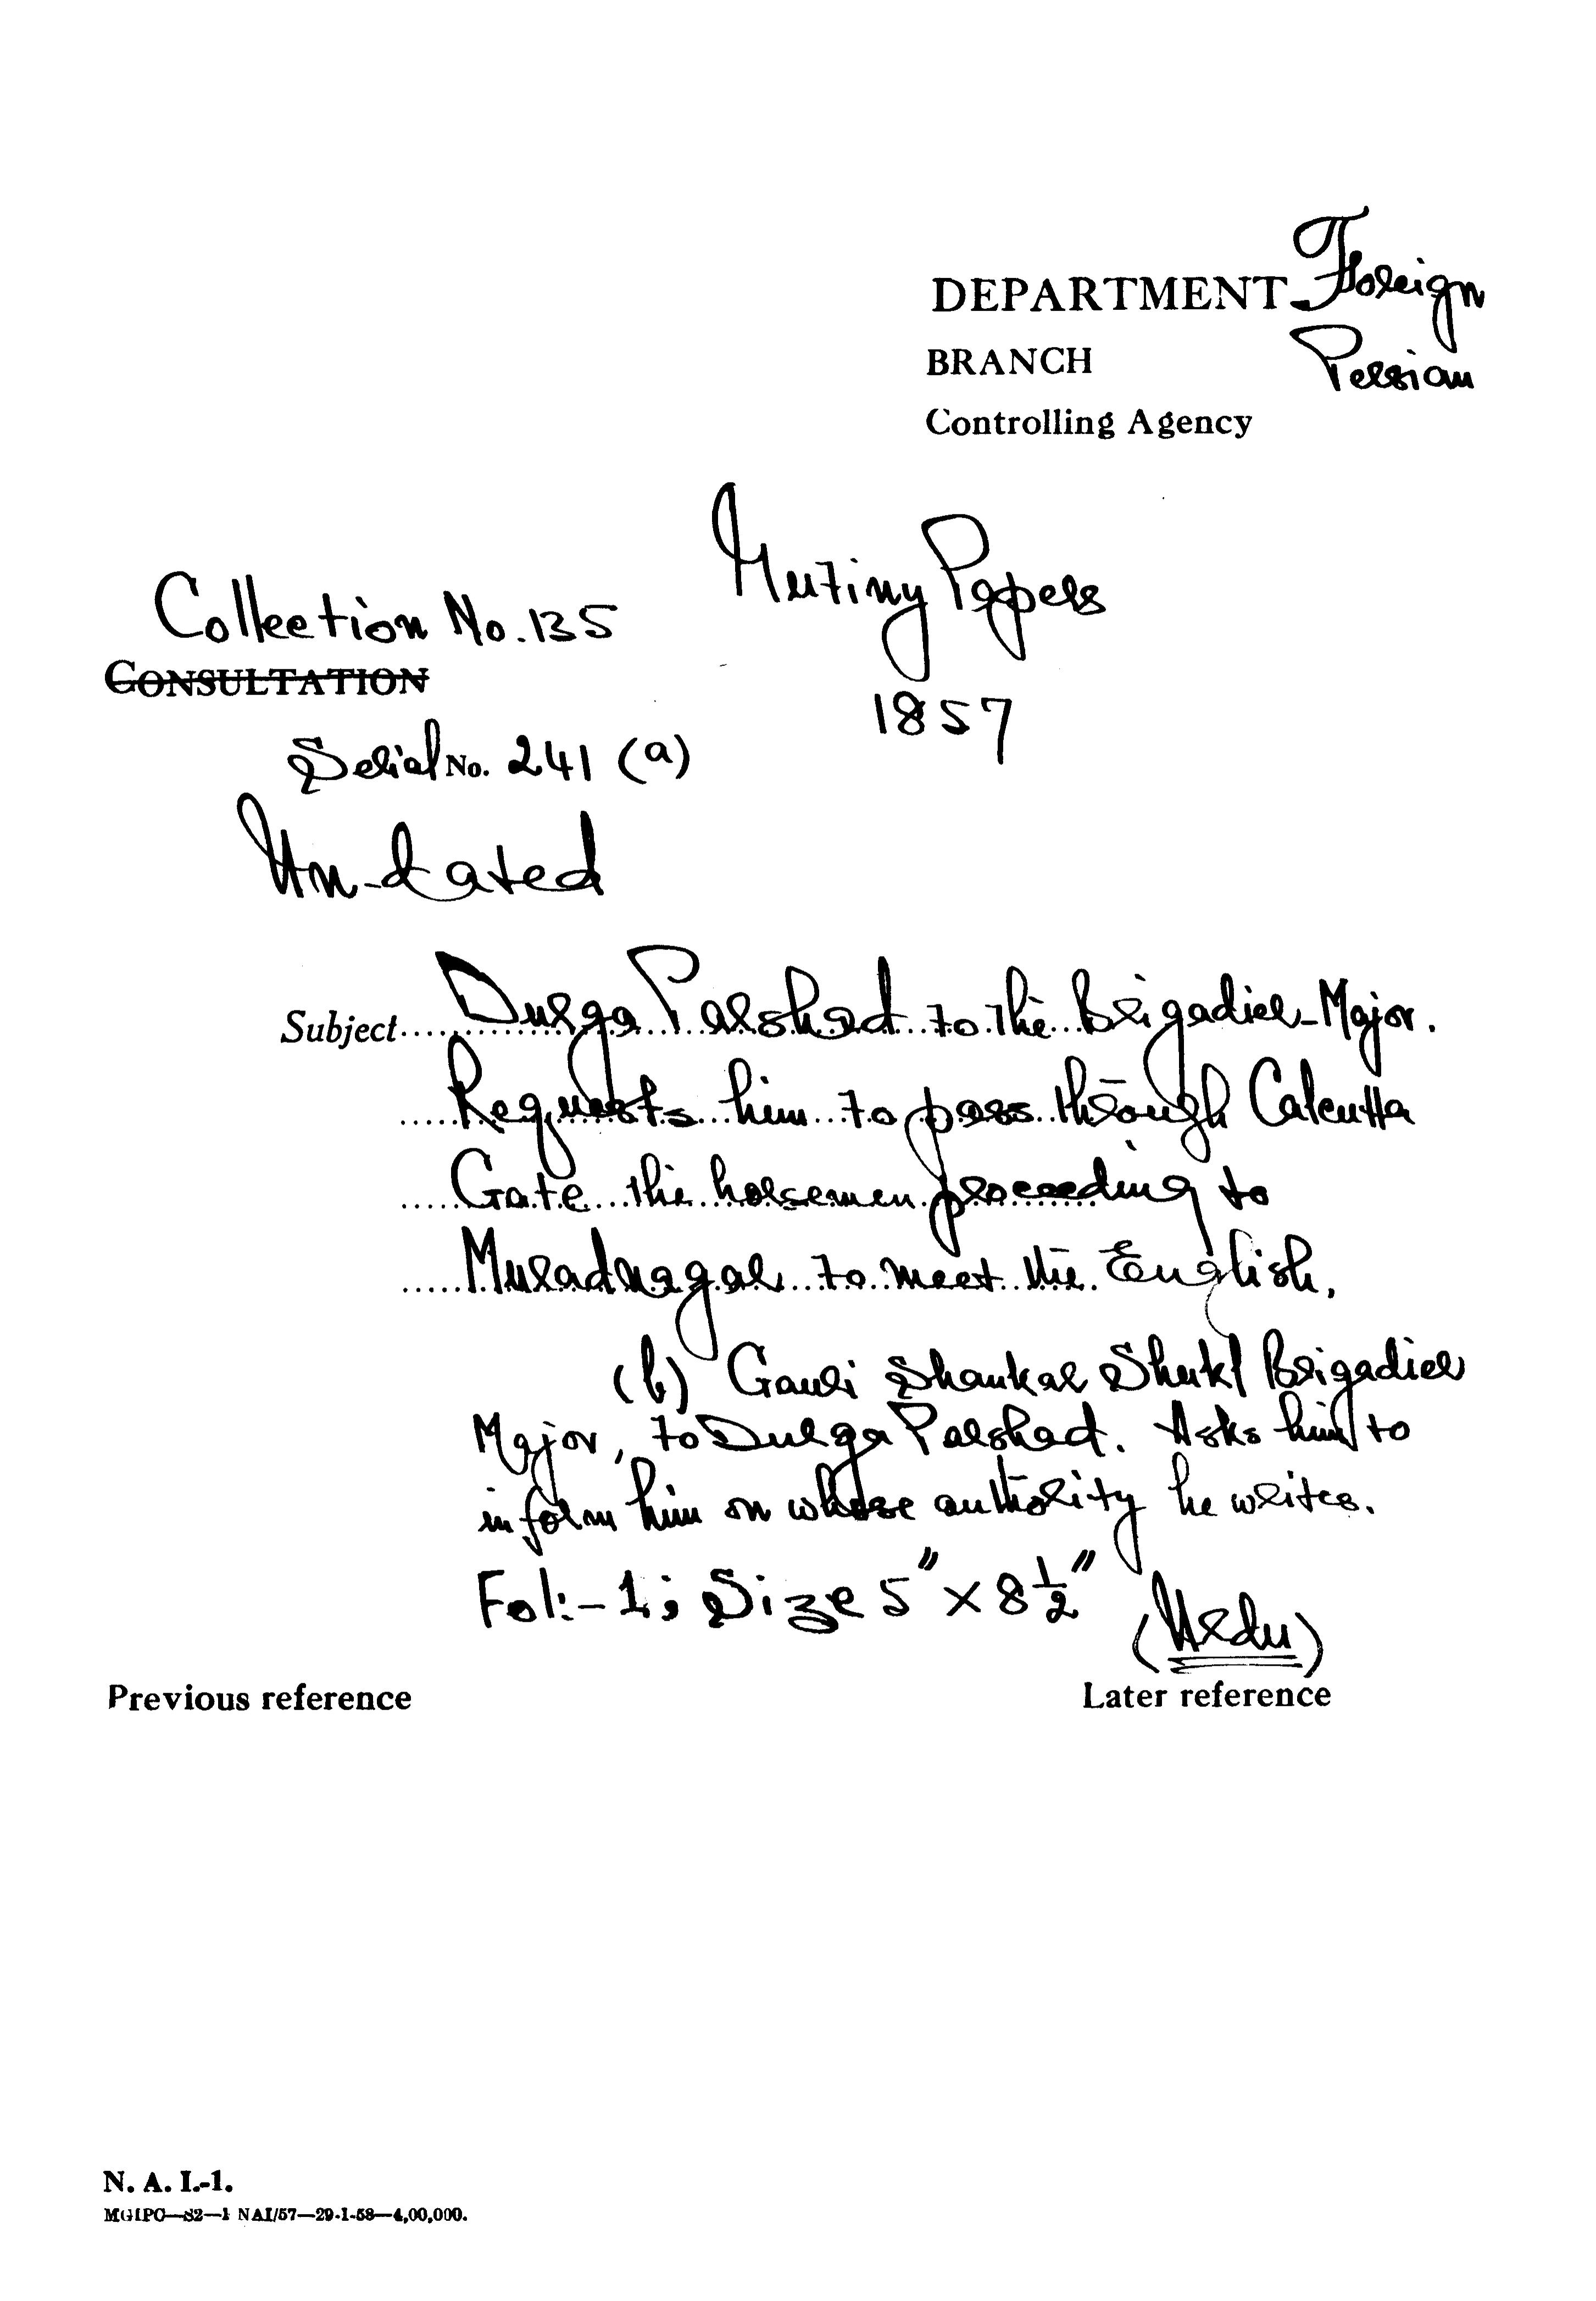 DEPARTMENT Foreign
BRANCH Persian
Controlling Agency
Mutiny Papers
1857
Collection No. 135
CONSULTATION
Serial No. 241 (a)
Un-dated
Subject Durga Parshad to the Brigadier-Major.
Requests him to pass through Calcutta
Gate the horsemen proceeding to
Muradnagar to meet the English.
(b) Gauri Shankar Shukl Brigadier
Major, to Durga Parshad. Asks him to
inform him on whose authority he writes.
Fol:-1; Size 5" × 8½"
(Urdu)
Previous reference Later reference
N. A. I.-1.
MGIPC—S2—1 NAI/57—29-1-58—4,00,000.